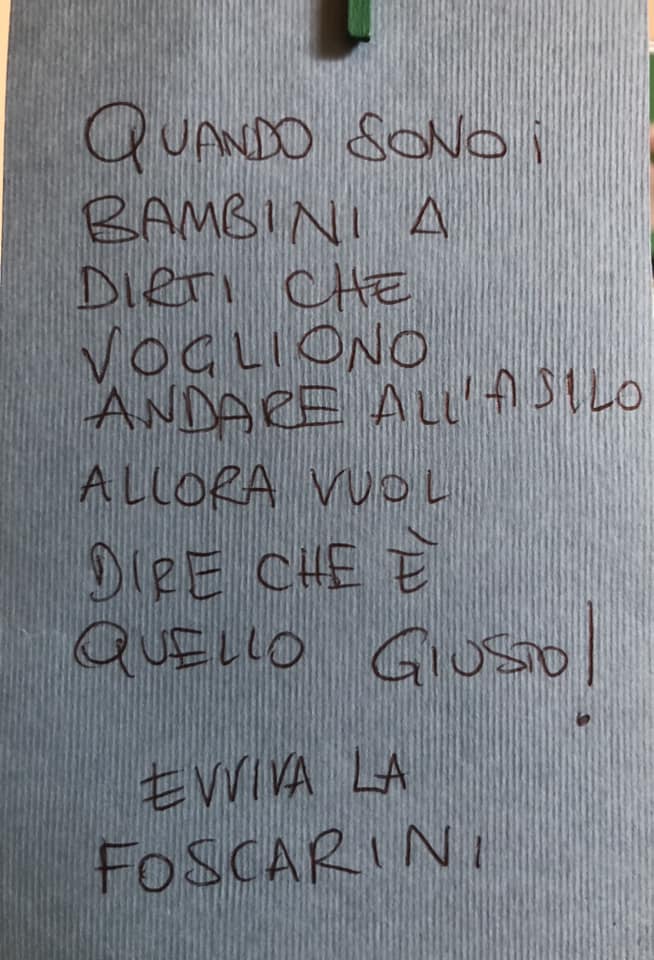 QUANDO SONO i
BAMBINI A
DIRTI CHE
VOGLIONO
ANDARE ALL'ASILO
ALLORA VUOL
DIRE CHE È
QUELLO GIUSTO!
EVVIVA LA
FOSCARINI